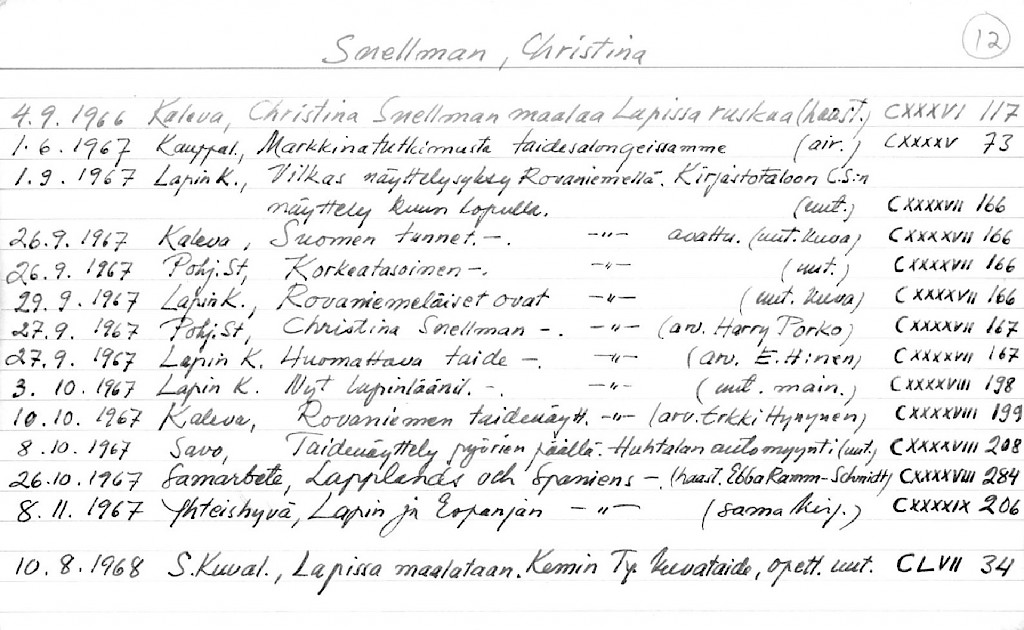 Snellman, Christina 12
4.9.1966 Kaleva, Christina Snellman maalaa Lapissa ruskaa (haast.) CXXXVI 117
1.6.1967 Kauppal., Markkinatutkimusta taidesalongeissamme (air.) CXXXXV 73
1.9.1967 Lapin K., Vilkas näyttelysyksy Rovaniemellä. Kirjastotaloon C.S:n
näyttely kuun lopulla. (uut.) CXXXXVII 166
26.9.1967 Kaleva, Suomen tunnet. -. -"- avattu. (uut. kuva) CXXXXVII 166
26.9.1967 Pohj.St, Korkeatasoinen -. -"- (uut.) CXXXXVII 166
29.9.1967 Lapin K., Rovaniemeläiset ovat -"- (uut. kuva) CXXXXVII 166
27.9.1967 Pohj.St, Christina Snellman -. -"- (arv. Harry Porko) CXXXXVII 167
27.9.1967 Lapin K. Huomattava taide -. -"- (arv. E.Hinen) CXXXXVII 167
3.10.1967 Lapin K. Nyt lapinläänil. -. -"- (uut. main.) CXXXXVIII 198
10.10.1967 Kaleva, Rovaniemen taidenäytt. -"- (arv. Erkki Hynynen) CXXXXVIII 199
8.10.1967 Savo, Taidenäyttely pyörien päällä. Huhtalan automyynti (uut.) CXXXXVIII 208
26.10.1967 Samarbete, Lapplands och Spaniens -. (haast. Ebba Ramm-Schmidt) CXXXXVIII 284
8.11.1967 Yhteishyvä, Lapin ja Espanjan -"- (sama kirj.) CXXXXIX 206
10.8.1968 S.Kuval., Lapissa maalataan. Kemin Ty. kuvataide, opett. uut. CLVII 34